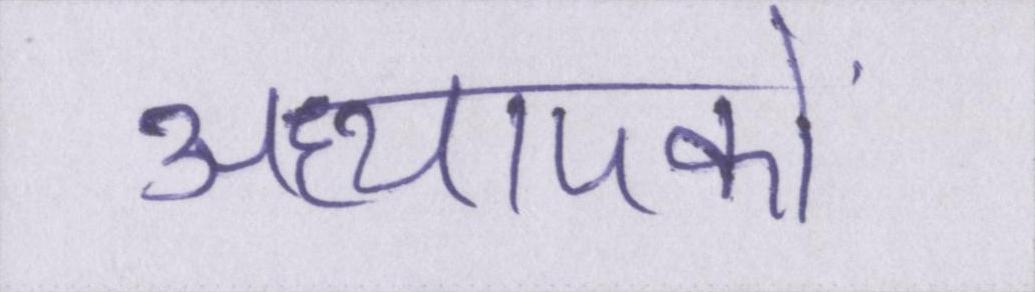 अध्यापकों